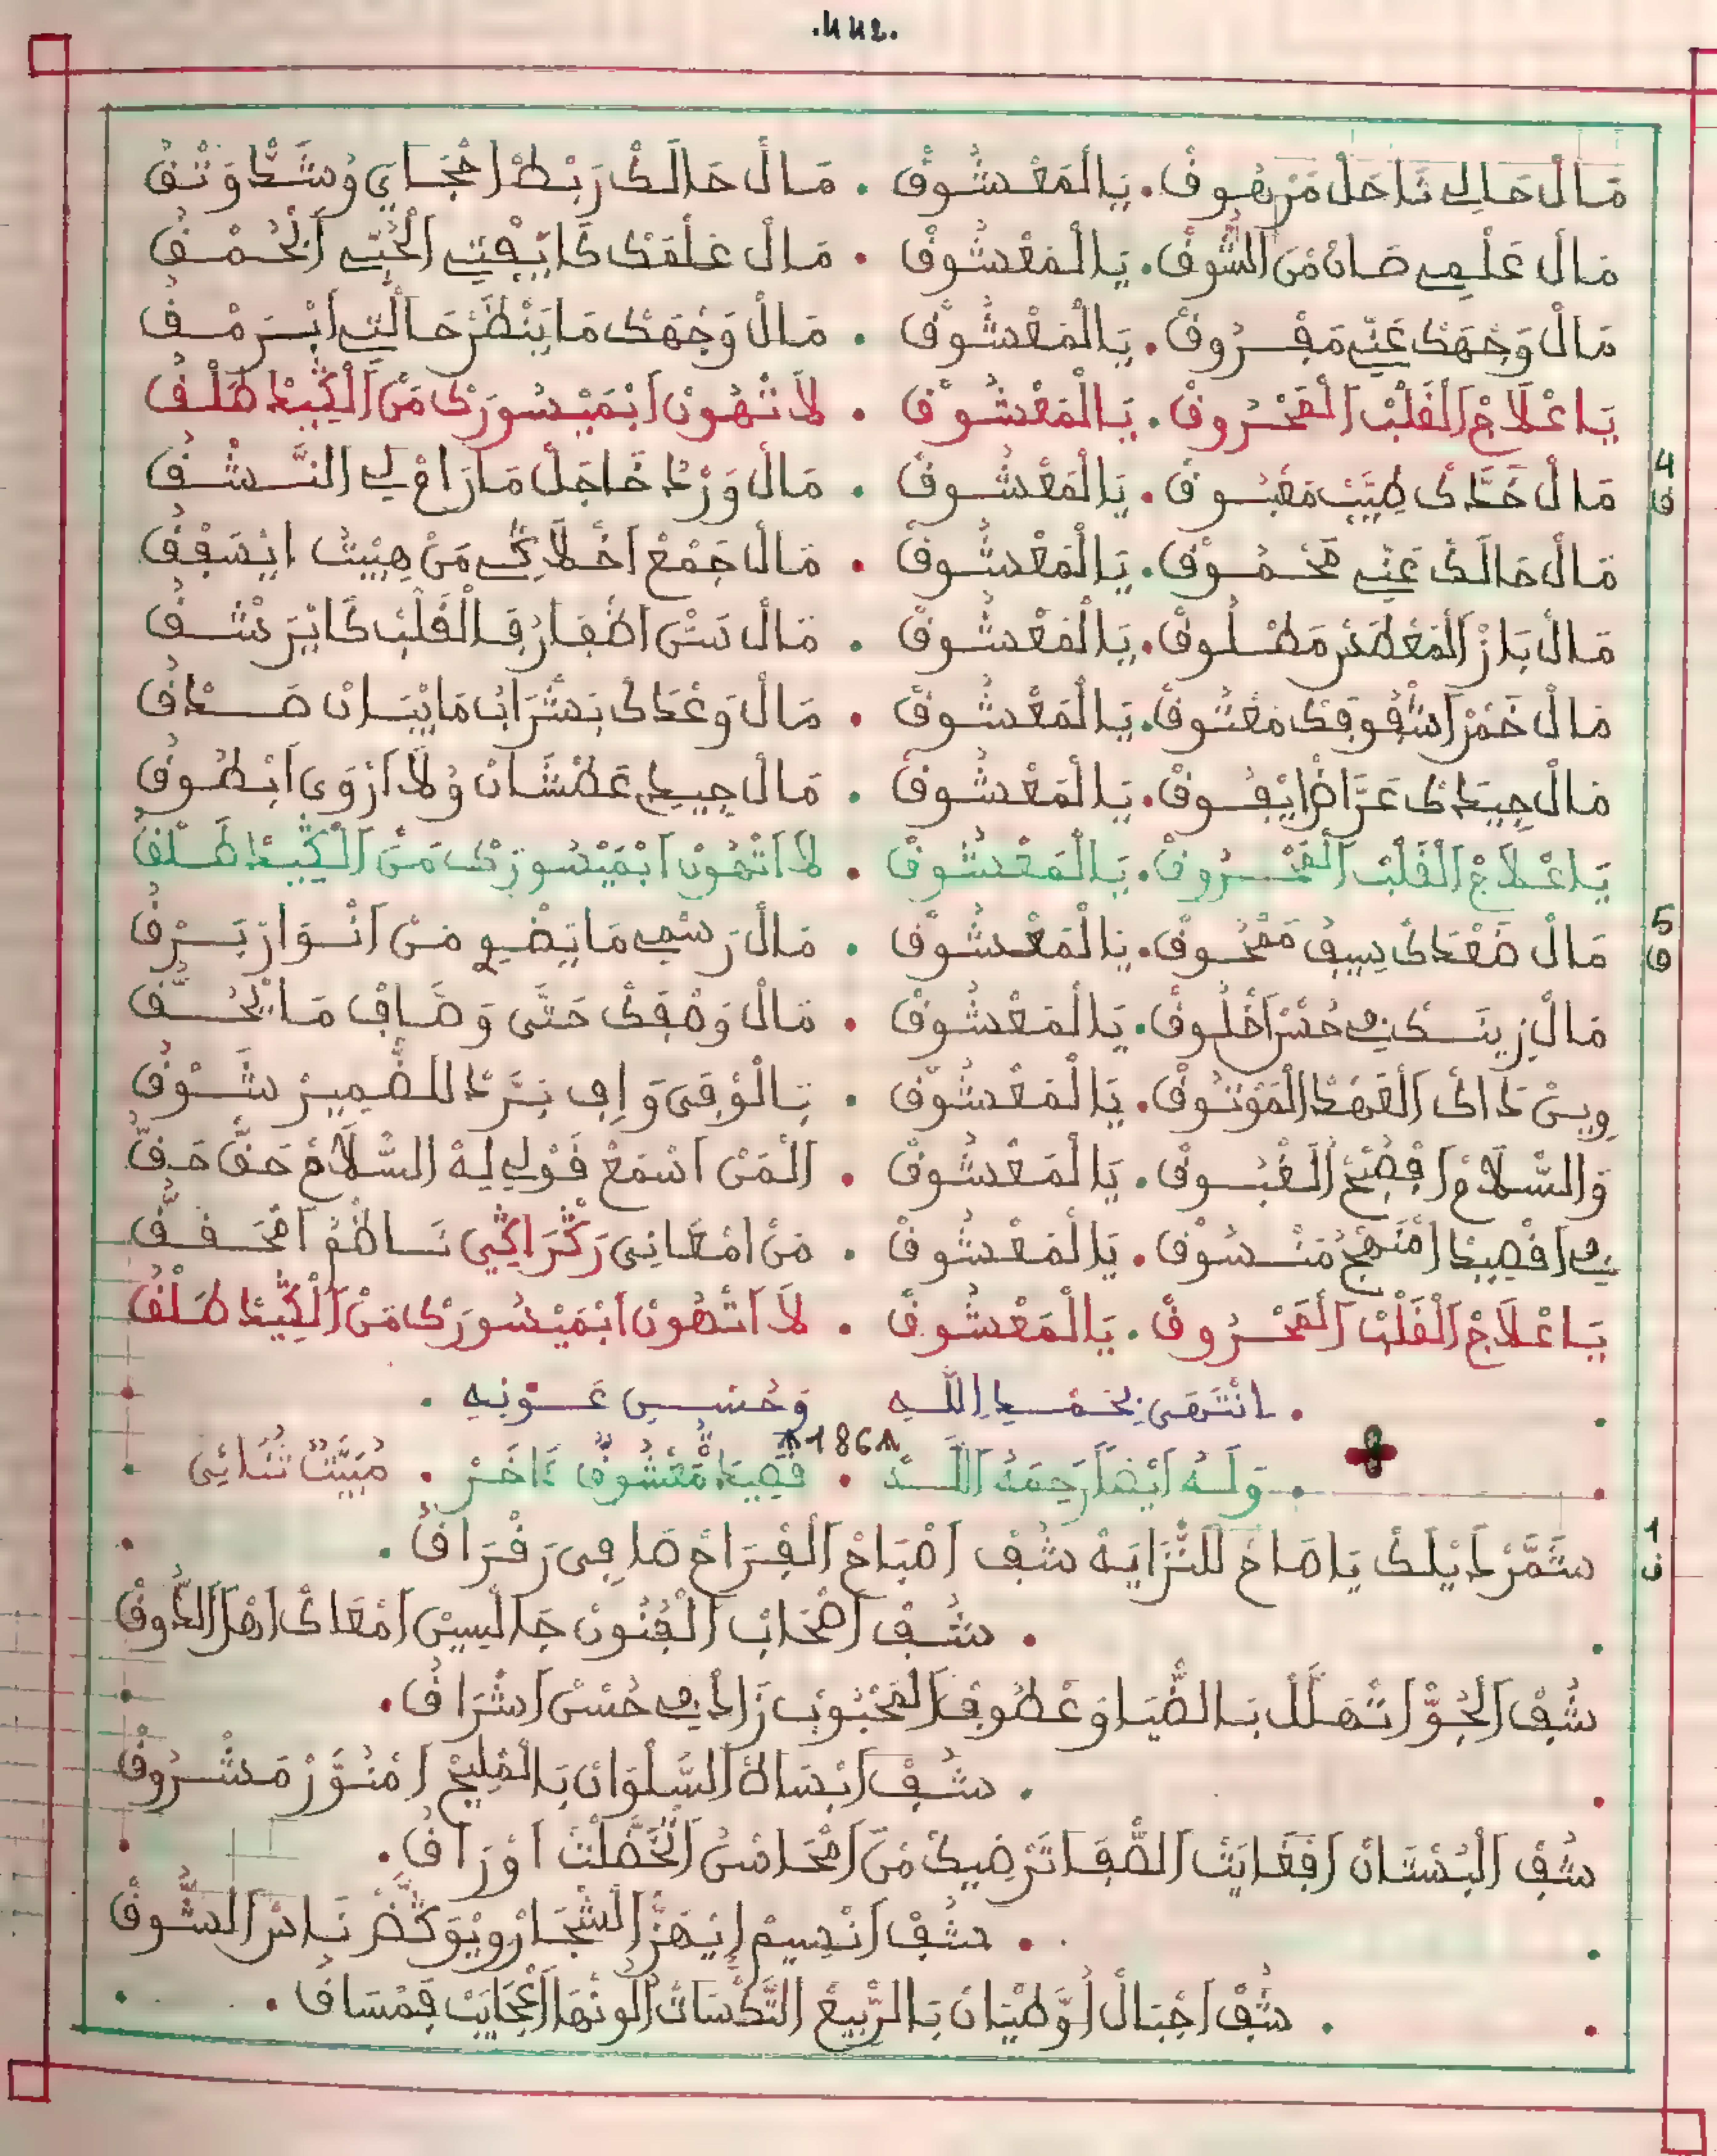 .442.
مَالْ حَالِي نَاحَلْ مَرْهُوقْ. يَالْمَعْشُوقْ . مَالْ حَالَكْ رَبْطْ اجْفَايَ وُشَدّْ وَثْقُ
مَالْ عَلْمِي صَانْ مَنْ الشُّوقْ. يَالْمَعْشُوقْ . مَالْ عَلْمَكْ كَايَفْتِي الْحُبِّي
مَالْ وَجْهَكْ عَنِّي مَفْرُوقْ. يَالْمَعْشُوقْ . مَالْ وَجْهَكْ مَايَنْظَرْ حَالْتِي ابْرَمْقُ
يَاعْلَاجْ الْقَلْبْ الْمَحْرُوقْ. يَالْمَعْشُوقْ . لَا تْهُونْ ابْمَيْسُورَكْ مَنْ الْكِيدْ طَلْقُ
4
ق
مَالْ خَدَّكْ طِيبْ مَعْبُوقْ. يَالْمَعْشُوقْ . مَالْ وَرْدْ خَاجَلْ مَارَامْ لِي النَّشْقُ
مَالْ حَالَكْ عَنِّي مَحْمُوقْ. يَالْمَعْشُوقْ . مَالْ جَمْعْ اخْلَاكِي مَنْ هِيبْتْ ايْسَقْقُ
مَالْ بَازْ الْمَعْطَسْ مَطْلُوقْ. يَالْمَعْشُوقْ . مَالْ سَنّْ اظْفَارُ فَالْقَلْبْ كَايْرَشْقُ
مَالْ خَمْرْ اشْفُوفَكْ مَعْتُوقْ. يَالْمَعْشُوقْ . مَالْ وَعْدَكْ بَشْرَابُ مَايْبَانْ صَدْقُ
مَالْ جِيدَكْ عَرَّاضْ ايْفُوقْ. يَالْمَعْشُوقْ . مَالْ جِيدِي عَطْشَانْ وُلَا ارْوَى ابْطُوقُ
يَاعْلَاجْ الْقَلْبْ الْمَحْرُوقْ. يَالْمَعْشُوقْ . لَا اتْهُونْ ابْمَيْسُورَكْ مَنْ الْكِيدْ طَلْقُ
5
ق
مَالْ صَعْدَكْ سِيفْ مَمْحُوقْ. يَالْمَعْشُوقْ . مَالْ رَسْمِي مَايَضْوِي مَنْ انْوَارْ بَرْقُ
مَالْ زِينَكْ فِي حُسْنْ اخْلُوقْ. يَالْمَعْشُوقْ . مَالْ وَصْفَكْ حَتَّى وَصَّافْ مَايْحَقُّ
وِينْ ذَاكْ الْعَهْدْ الْمَوْثُوقْ. يَالْمَعْشُوقْ . بَالْوْفَى وَافِي بَرَّدْ للضْمِيرْ شَوْقُ
وَالسّْلَامْ افْصِيحْ الْعَبُوقْ. يَالْمَعْشُوقْ . الْمَنْ اسْمَعْ قَوْلِي لِهْ السّْلَامْ حَقّْ حَقُّ
فِي اقْصِيدْ امْنَهَّجْ مَنْسُوقْ. يَالْمَعْشُوقْ . مَنْ امْعَانِي رَكْرَاكِي نَاظْمُ امْحَقَّقُ
يَاعْلَاجْ الْقَلْبْ الْمَحْرُوقْ. يَالْمَعْشُوقْ . لَا اتْهُونْ ابْمَيْسُورَكْ مَنْ الْكِيدْ طَلْقُ
. انْتَهَى بِحَمْدِ اللَّهِ وَحُسْنِ عَوْنِهِ .
186
وَلَهُ أَيْضاً رَحِمَهُ اللَّهُ . قَصِيدَةُ مَعْشُوقْ ءَاخَرْ . مُبَيَّتْ ثُنَائِي
1
ق
شَمَّرْ ذَيْلَكْ يَاصَاحْ للنّْزَايَهْ شُفْ امْبَاحْ الْفْرَاحْ صَافِي رَقْرَاقْ .
. شُفْ اصْحَابْ الْفْنُونْ جَالْسِينْ امْعَاكْ اهْلْ الذُّوقْ
شُفْ الْجُوّْ اتْهَلَّلْ بَالضّْيَا وَعْطُوفْ الْمَحْبُوبْ زَادْ فِي حُسْنْ اشْرَاقْ .
. شُفْ ابْسَاطْ السَّلْوَانْ بَالْمْلِيحْ امْنُوَّرْ مَشْرُوقْ
شُفْ الْبُسْتَانْ افْغَايَتْ الصّْفَا تَرْضِيكْ مَنْ امْحَاسْنُ الْخَضْلَتْ اوْرَاقْ .
. شُفْ انْسِيمْ ايْهَزّْ الشْجَارْ وِيْوَكَّضْ نَاسْ الشُّوقْ
. شُفْ اجْبَالْ اوَّطْيَانْ بَالرّْبِيعْ التّْكْسَاتْ الْونْهَا اعْجَايَبْ فَمْسَاقْ .